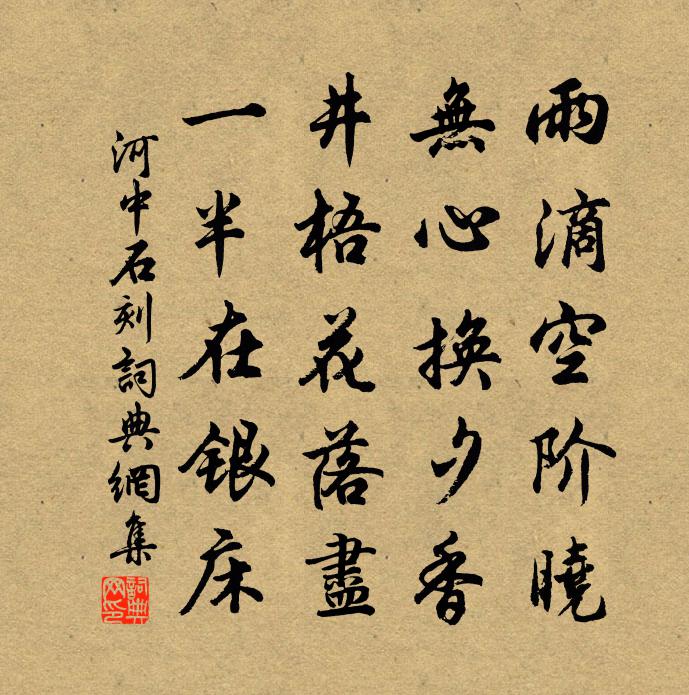 雨滴空阶曉
無心換夕香
井梧花落盡
一半在銀床
河中石刻詞典網集
詞典网印